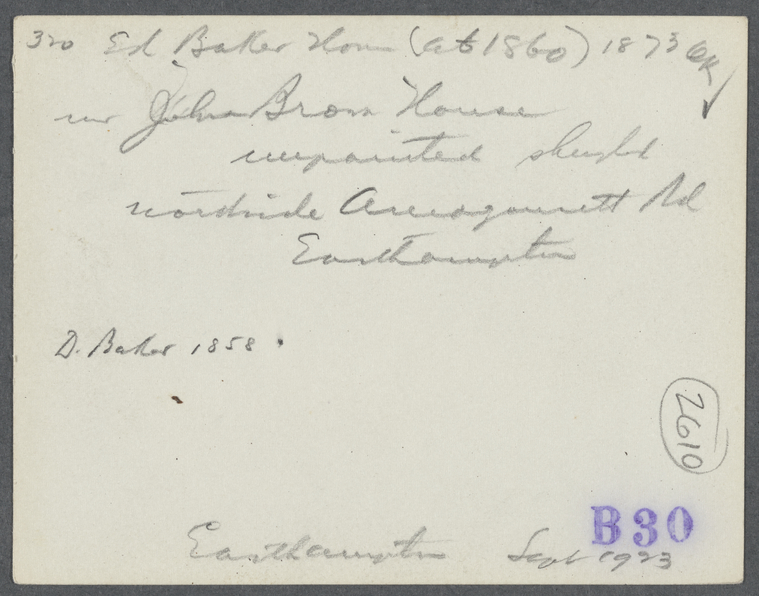 320 Ed Baker House (at 1860) 1873 OK ✓
nr John Brown House
unpainted shingled
northside Amagansett Rd
Easthampton
D. Baker 1858
2610
B30
Easthampton Sept 1923